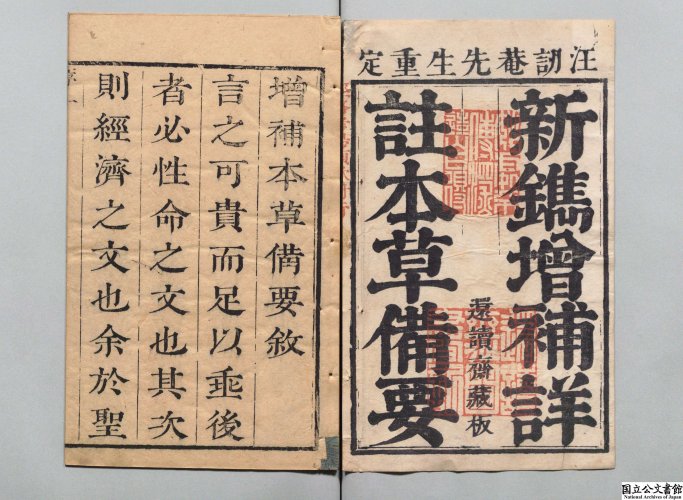 汪訒菴先生重定
新鐫增補詳
註本草備要
還讀齋藏板
增補本草備要敘
言之可貴而足以垂後
者必性命之文也其次
則經濟之文也余於聖
国立公文書館
National Archives of Japan